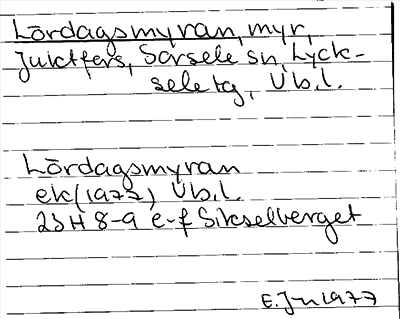 Lördagsmyran, myr,
Juktfors, Sorsele sn, Lyck-
sele tg, Vb. l.
Lördagsmyran
ek (1977) Vb. l.
23H 8-9 e-f Sikselberget
1977